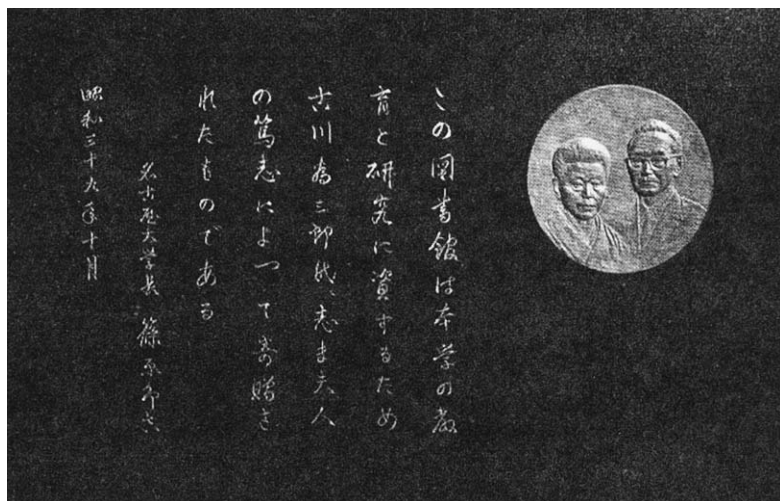 この図書館は本学の教
育と研究に資するため
古川為三郎氏、志ま夫人
の篤志によつて寄贈さ
れたものである
名古屋大学長 篠原卯吉
昭和三十九年十月